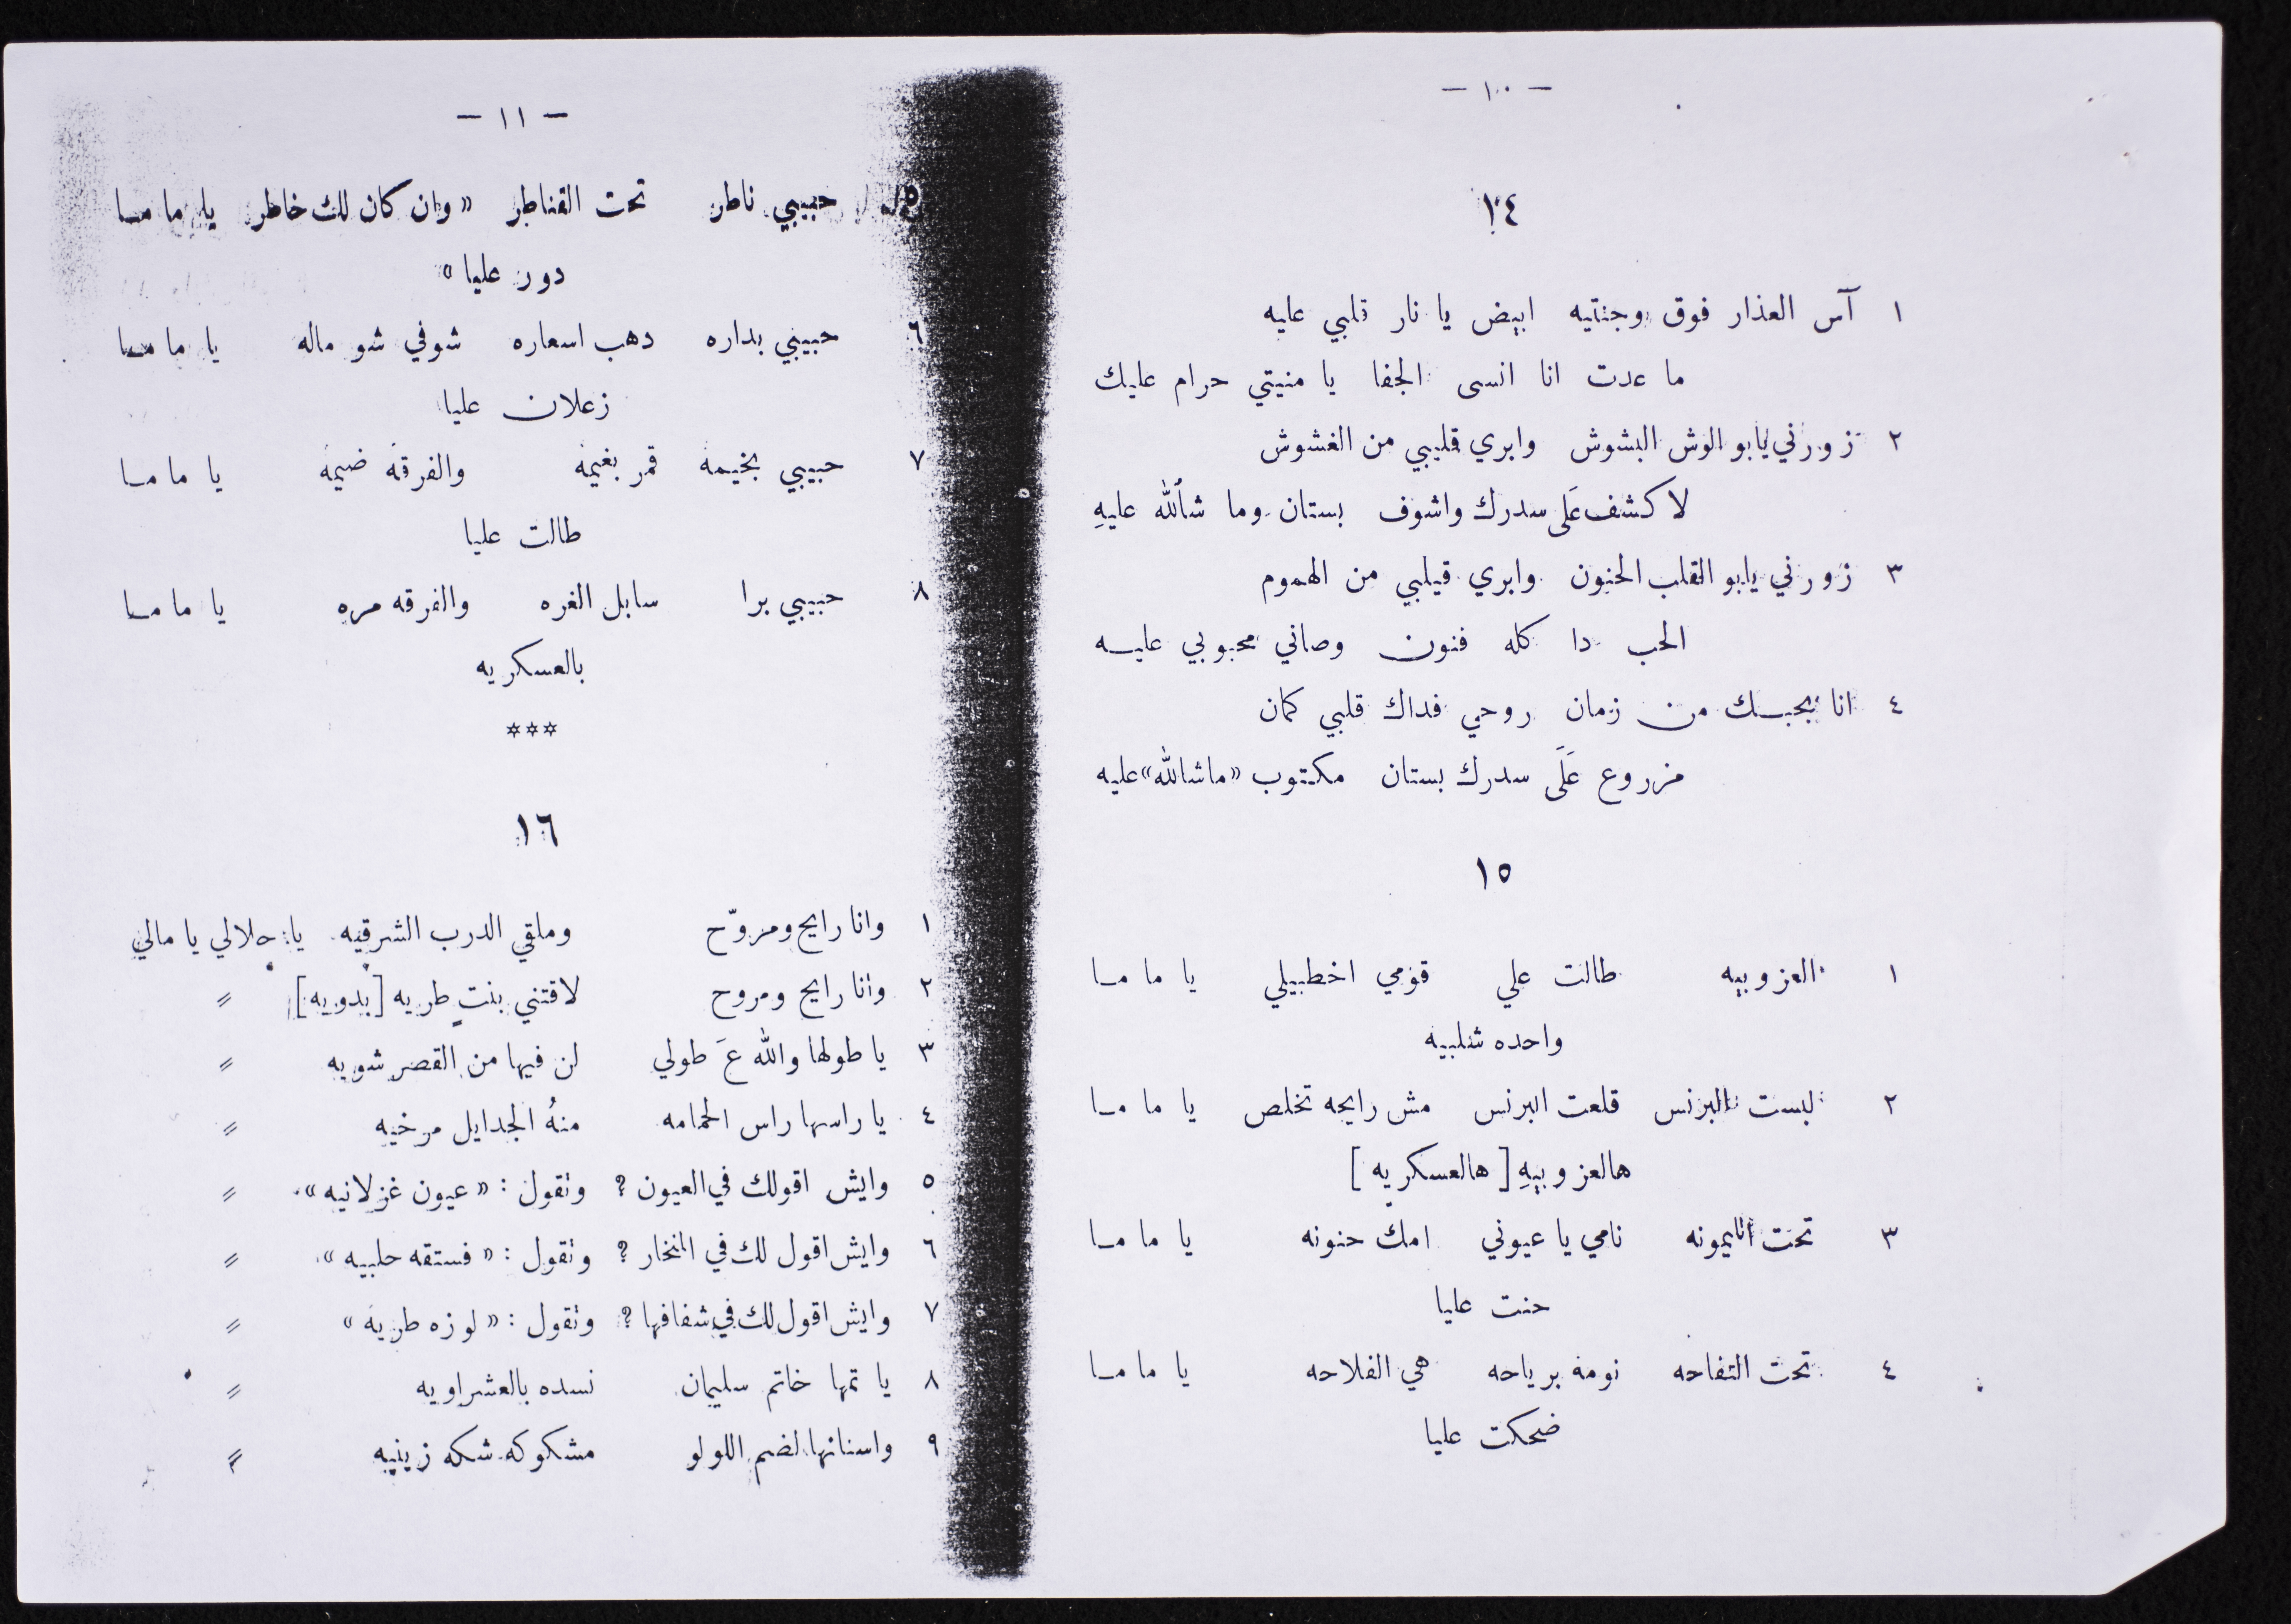 — ١٠ —
١٤
١ آس العذار فوق وجنتيه ابيض يا نار قلبي عليه
ما عدت انا انسى الجفا يا منيتي حرام عليك
٢ زورني يابو الوش البشوش وابري قليبي من الغشوش
لاكشف عَلَى سدرك واشوف بستان وما شألله عليهِ
٣ زورني يابو القلب الحنون وابري قيلبي من الهموم
الحب دا كله فنون وصاني محبوبي عليه
٤ انا بحبك من زمان روحي فداك قلبي كمان
مزروع عَلَى سدرك بستان مكتوب «ماشالله» عليه
١٥
١ العزوبيه طالت علي قومي اخطبيلي يا ماما
واحده شلبيه
٢ لبست البرنس قلعت البرنس مش رايحه تخلص يا ماما
هالعزوبيهِ [هالعسكريه]
٣ تحت الليمونه نامي يا عيوني امك حنونه يا ماما
حنت عليا
٤ تحت التفاحه نومة برياحه هي الفلاحه يا ماما
ضحكت عليا
— ١١ —
٥ حبيبي ناطر تحت القناطر «وان كان لك خاطر يا ماما
دور عليا»
٦ حبيبي بداره دهب اسعاره شوفي شو ماله يا ماما
زعلان عليا
٧ حبيبي بخيمة قمر بغيمة والفرقة ضيمة يا ماما
طالت عليا
٨ حبيبي برا سابل الغره والفرقه مره يا ماما
بالعسكريه
***
١٦
١ وانا رايح ومروّح وملقي الدرب الشرقيه يا حلالي يا مالي
٢ وانا رايح ومروح لاقتني بنت طريه [بدويه]〃
٣ يا طولها والله عَ طولي لن فيها من القصر شويه 〃
٤ يا راسها راس الحمامه منهُ الجدايل مرخيه 〃
٥ وايش اقولك في العيون؟ وتقول: «عيون غزلانيه» 〃
٦ وايش اقول لك في المنخار؟ وتقول: «فستقه حلبيه» 〃
٧ وايش اقول لك في شفافها؟ وتقول: «لوزه طريه» 〃
٨ يا تمها خاتم سليمان نسده بالعشراويه 〃
٩ واسنانها لضم اللولو مشكوكه شكه زينيه 〃